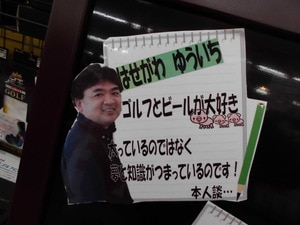 はせがわ ゆういち
ゴルフとビールが大好き
太っているのではなく
夢と知識がつまっているのです！
本人談…